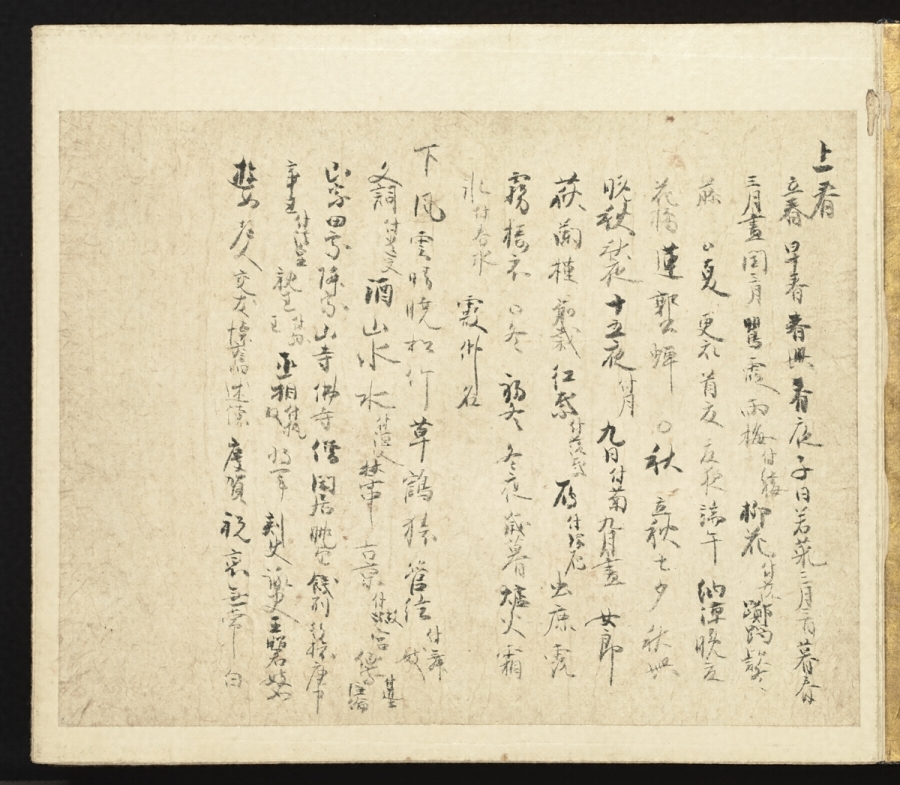 上春
立春 早春 春興 春夜 子日 若菜 三月三日 暮春
三月盡 閏三月 鶯 霞 雨 梅付紅梅 柳 花付落花 躑躅 款冬
藤 ○夏 更衣 首夏 夏夜 端午 納涼 晩夏
花橘 蓮 郭公 蟬 ○秋 立秋 七夕 秋興
晩秋 秋夜 十五夜付月 九日付菊 九月盡 女郎
萩 蘭 槿 前栽 紅葉付落葉 雁付歸雁 虫 鹿 露
霧 擣衣 ○冬 初冬 冬夜 歳暮 爐火 霜
氷付春氷 霰 佛名
下 風 雲 晴 曉 松 竹 草 鶴 猿 管絃付舞妓
文詞付遺文 酒 山水 水付漁父 禁中 古京 付故宮 仙家付道士
山家 田家 隣家 山寺 佛寺 僧 閑居 眺望 餞別 行旅 庚申
帝王付法皇 親王付王孫 丞相付執政 將軍 刺史 詠史 王昭君 妓女
遊女 老人 交友 懷舊 述懷 慶賀 祝 戀 無常 白